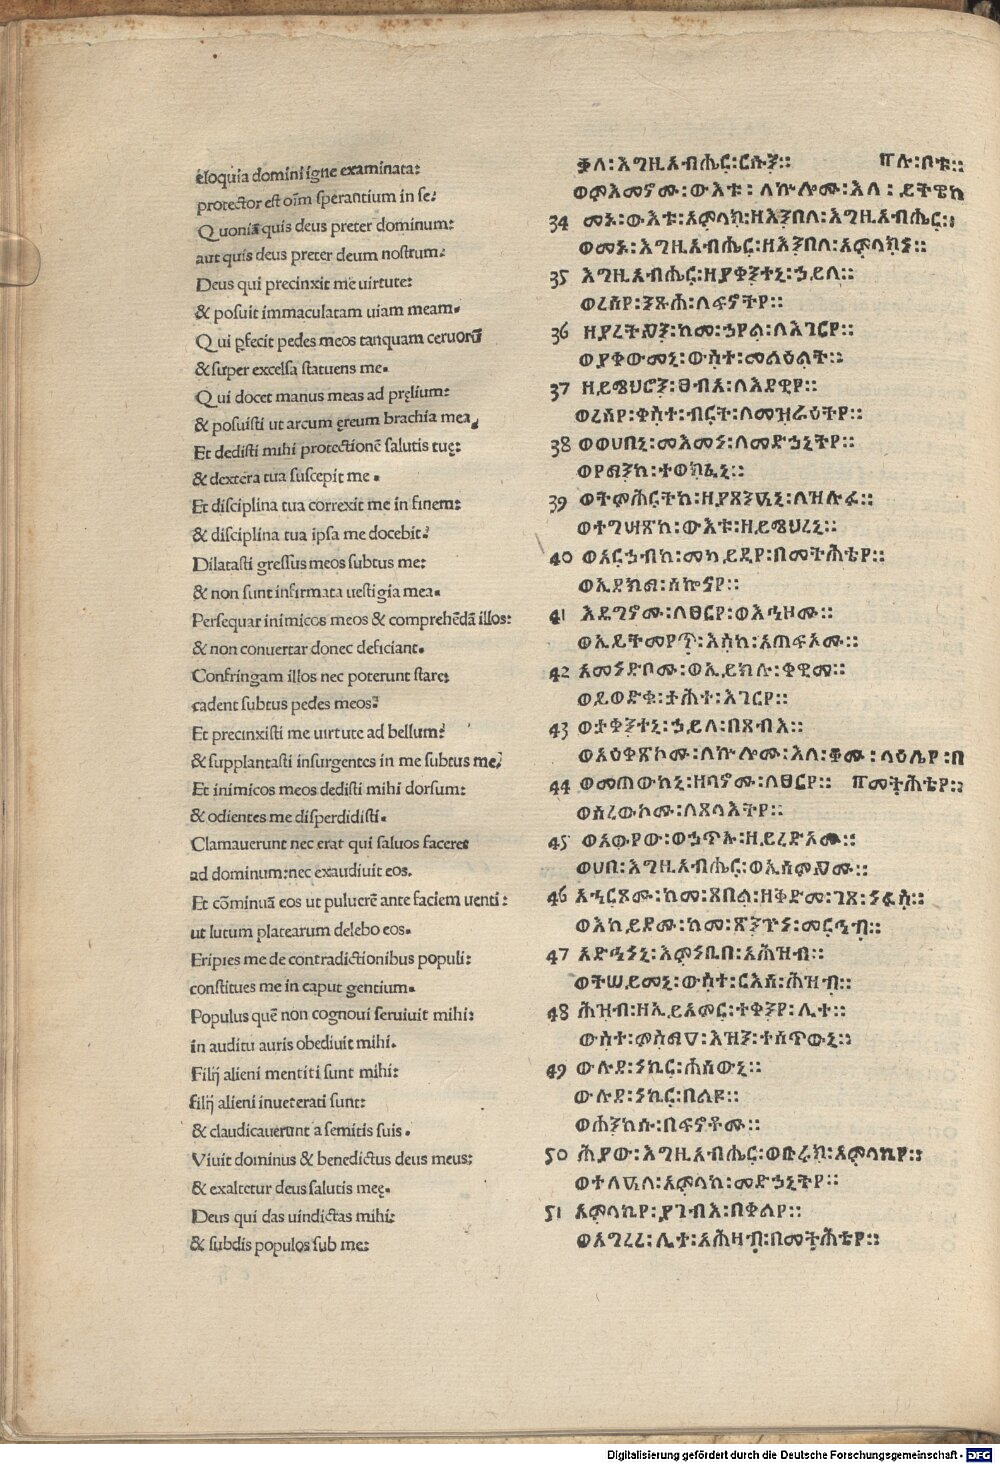 eloquia domini igne examinata:
protector est oīm sperantium in se:
Quoniā quis deus preter dominum:
aut quis deus preter deum nostrum:
Deus qui precinxit me uirtute:
& posuit immaculatam uiam meam.
Qui ꝑfecit pedes meos tanquam ceruorū
& super excelsa statuens me.
Qui docet manus meas ad pręlium:
& posuisti ut arcum ęreum brachia mea,
Et dedisti mihi protectionē salutis tuę:
& dextera tua suscepit me.
Et disciplina tua correxit me in finem:
& disciplina tua ipsa me docebit:
Dilatasti gressus meos subtus me:
& non sunt infirmata uestigia mea.
Persequar inimicos meos & comprehēdā illos:
& non conuertar donec deficiant.
Confringam illos nec poterunt stare:
cadent subtus pedes meos:
Et precinxisti me uirtute ad bellum:
& supplantasti insurgentes in me subtus me:
Et inimicos meos dedisti mihi dorsum:
& odientes me disperdidisti.
Clamauerunt nec erat qui saluos faceret
ad dominum: nec exaudiuit eos.
Et cōminuā eos ut puluerē ante faciem uenti:
ut lutum platearum delebo eos.
Eripies me de contradictionibus populi:
constitues me in caput gentium.
Populus quē non cognoui seruiuit mihi:
in auditu auris obediuit mihi.
Filij alieni mentiti sunt mihi:
filij alieni inueterati sunt:
& claudicauerunt a semitis suis.
Viuit dominus & benedictus deus meus:
& exaltetur deus salutis meę.
Deus qui das uindictas mihi:
& subdis populos sub me:
ቃለ፡እግዚአብሔር፡ርሱን፡፡ ሉ፡ቦቱ፡፡
ወምእመኖሙ፡ውእቱ፡ለኵሎሙ፡እለ፡ይትዌከ
34 መኑ፡ውእቱ፡አምላክ፡ዘእንበለ፡እግዚአብሔር፡፡
ወመኑ፡እግዚአብሔር፡ዘእንበለ፡አምላክነ፡፡
35 እግዚአብሔር፡ዘያቀንተኒ፡ኃይለ፡፡
ወረሰየ፡ንጹሕ፡ለፍኖትየ፡፡
36 ዘያረትዖን፡ከመ፡ኃየል፡ለእገርየ፡፡
ወያቀውመኒ፡ውስተ፡መልዕልት፡፡
37 ዘይሜህሮን፡ፀብአ፡ለእደዊየ፡፡
ወረሰየ፡ቀስተ፡ብርት፡ለመዝራዕትየ፡፡
38 ወወሀበኒ፡መእመነ፡ለመድኃኒትየ፡፡
ወየማንከ፡ተወክፈኒ፡፡
39 ወትምሕርትከ፡ዘያጸንዓኒ፡ለዝሉፉ፡፡
ወተግሣጸከ፡ውእቱ፡ዘይሜህረኒ፡፡
40 ወአርኃብከ፡መካይደየ፡በመትሕቴየ፡፡
ወኢደክማ፡ሰኰናየ፡፡
41 እዴግኖሙ፡ለፀርየ፡ወእኅዞሙ፡፡
ወኢይትመየጥ፡እስከ፡አጠፍኦሙ፡፡
42 አመነድቦሙ፡ወኢይክሉ፡ቀዊመ፡፡
ወይወድቁ፡ታሕተ፡እገርየ፡፡
43 ወታቀንተኒ፡ኃይለ፡በጸብእ፡፡
ወአዕቀጽኮሙ፡ለኵሎሙ፡እለ፡ቆሙ፡ላዕሌየ፡በ
44 ወመጠውከኒ፡ዘባኖሙ፡ለፀርየ፡፡ መትሕቴየ፡፡
ወሰረውኮሙ፡ለጸላእትየ፡፡
45 ወአውየው፡ወኃጥኡ፡ዘይረድኦሙ፡፡
ወሀበ፡እግዚአብሔር፡ወኢሰምዖሙ፡፡
46 አኀርጾሙ፡ከመ፡ጸበል፡ዘቅድመ፡ገጸ፡ነፋስ፡፡
ወእከይዶሙ፡ከመ፡ጽንጕነ፡መርኅብ፡፡
47 አድኅነኒ፡እምነቢበ፡አሕዝብ፡፡
ወትሠይመኒ፡ውስተ፡ርእሰ፡ሕዝብ፡፡
48 ሕዝብ፡ዘኢይአምር፡ተቀንየ፡ሊተ፡፡
ውስተ፡ምስማዐ፡እዝን፡ተሰጥውኒ፡፡
49 ውሉደ፡ነኪር፡ሐሰውኒ፡፡
ውሉደ፡ነኪር፡በልዩ፡፡
ወሐንከሱ፡በፍኖቶሙ፡፡
50 ሕያው፡እግዚአብሔር፡ወቡሩክ፡አምላኪየ፡፡
ወተለዓለ፡አምላከ፡መድኃኒትየ፡፡
51 አምላኪየ፡ያገብእ፡በቀልየ፡፡
ወአግረረ፡ሊተ፡አሕዛብ፡በመትሕቴየ፡፡
Digitalisierung gefördert durch die Deutsche Forschungsgemeinschaft - DFG